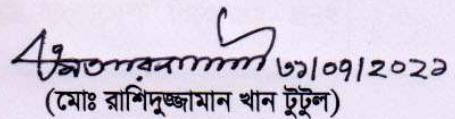 ৩১/০৭/২০২১
(মোঃ রাশিদুজ্জামান খান টুটুল)